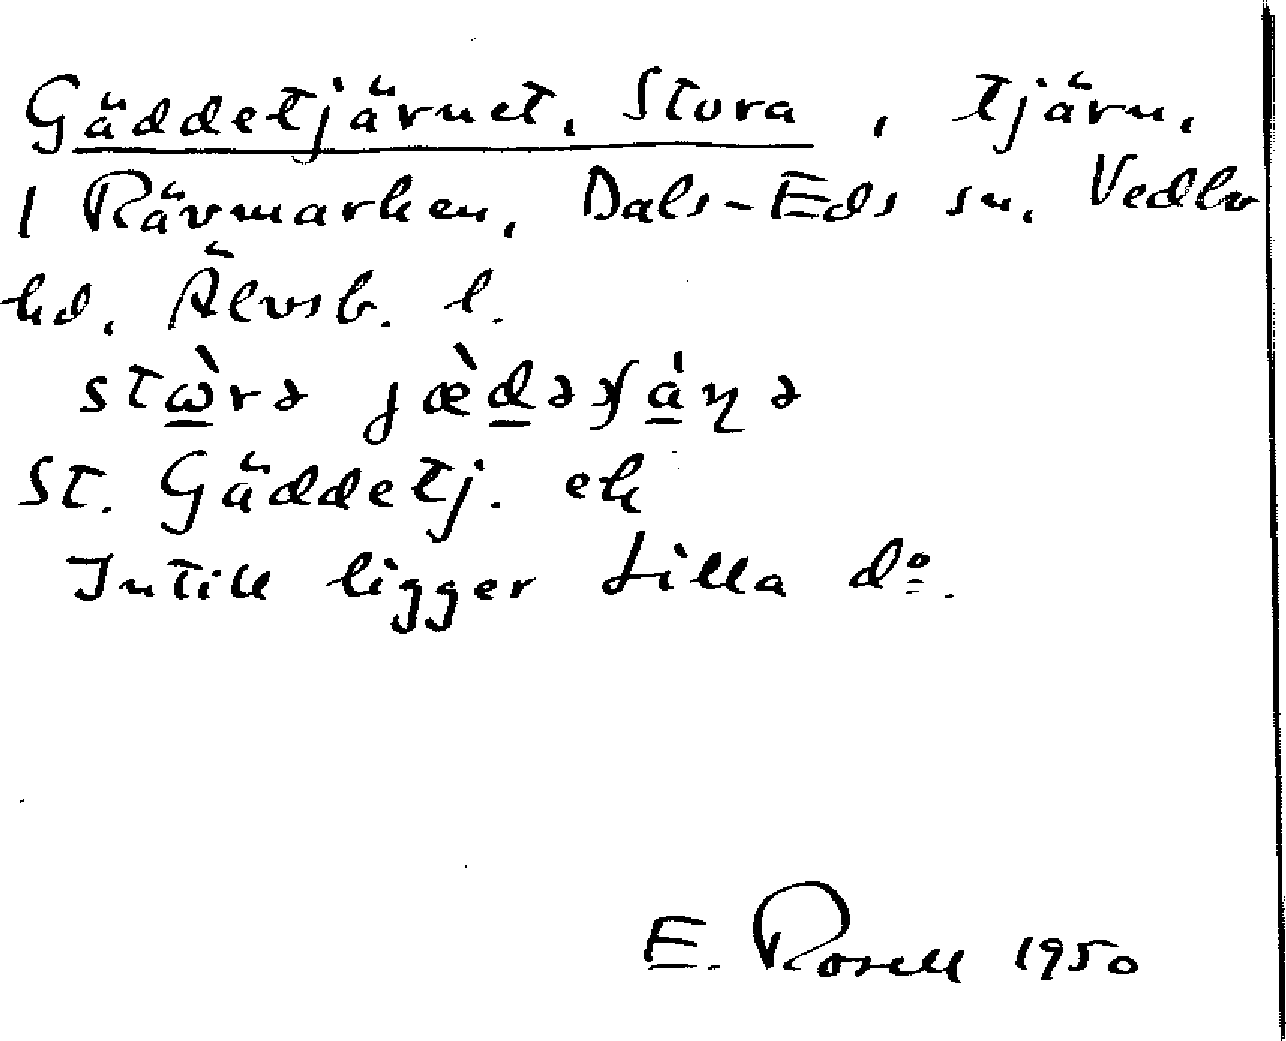 Gäddetjärnet, Stora, tjärn,
i Rävmarken, Dals-Eds sn, Vedbo
hd, Älvsb. l.
stὼrə jæ̀dəʂáɳə
St. Gäddetj. ek
Intill ligger Lilla do.
E. Rosell 1950